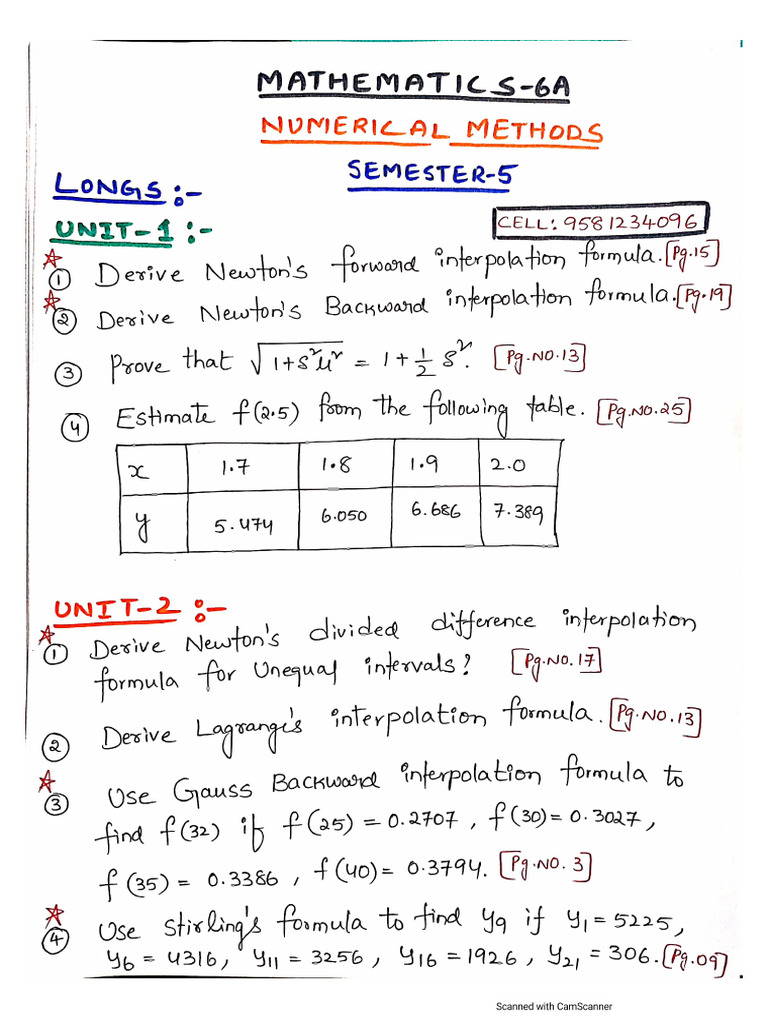 MATHEMATICS-6A
NUMERICAL METHODS
SEMESTER-5
LONGS :-
UNIT-1 :-
CELL: 9581234096
① Derive Newton's forward interpolation formula. [Pg.15]
② Derive Newton's Backward interpolation formula. [Pg.19]
③ Prove that √1+δ²μ² = 1 + 1/2 δ². [Pg.NO.13]
④ Estimate f(2.5) from the following table. [Pg.NO.25]
x 1.7 1.8 1.9 2.0
y 5.474 6.050 6.686 7.389
UNIT-2 :-
① Derive Newton's divided difference interpolation
formula for Unequal intervals? [Pg.NO.17]
② Derive Lagrangi's interpolation formula. [Pg.NO.13]
③ Use Gauss Backward interpolation formula to
find f(32) if f(25) = 0.2707, f(30) = 0.3027,
f(35) = 0.3386, f(40) = 0.3794. [Pg.NO. 3]
④ Use Stirling's formula to find y₉ if y₁ = 5225,
y₆ = 4316, y₁₁ = 3256, y₁₆ = 1926, y₂₁ = 306. [Pg.09]
Scanned with CamScanner